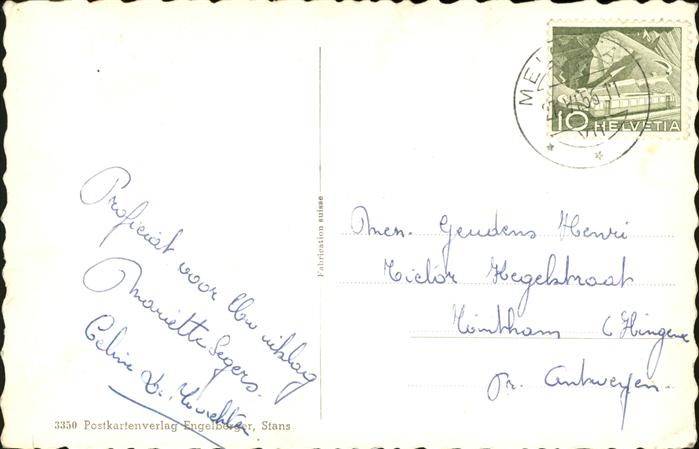 Proficiat voor Uw uitslag
Mariette Segers.
Celine De
3350 Postkartenverlag Engelberger, Stans
Fabrication suisse
10 HELVETIA
Men. Geudens Henri
Victor Hegelstraat
Wintham (Hingene
Pr. Antwerpen.